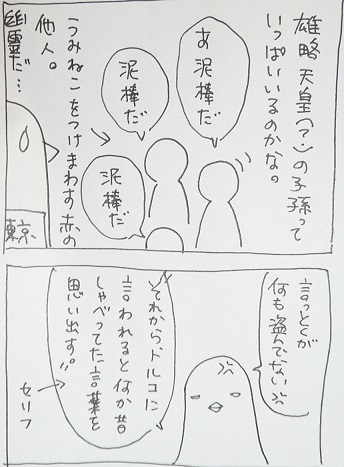 雄略天皇(?)の子孫って
いっぱいいるのかな。
あ泥棒だ
泥棒だ
泥棒だ
うみねこをつけまわす赤の
他人。
幽霊だ…
東京
言っとくが
何も盗んでない
それから、ドルコに
言われると何か昔
しゃべってた言葉を
思い出す。"
セリフ